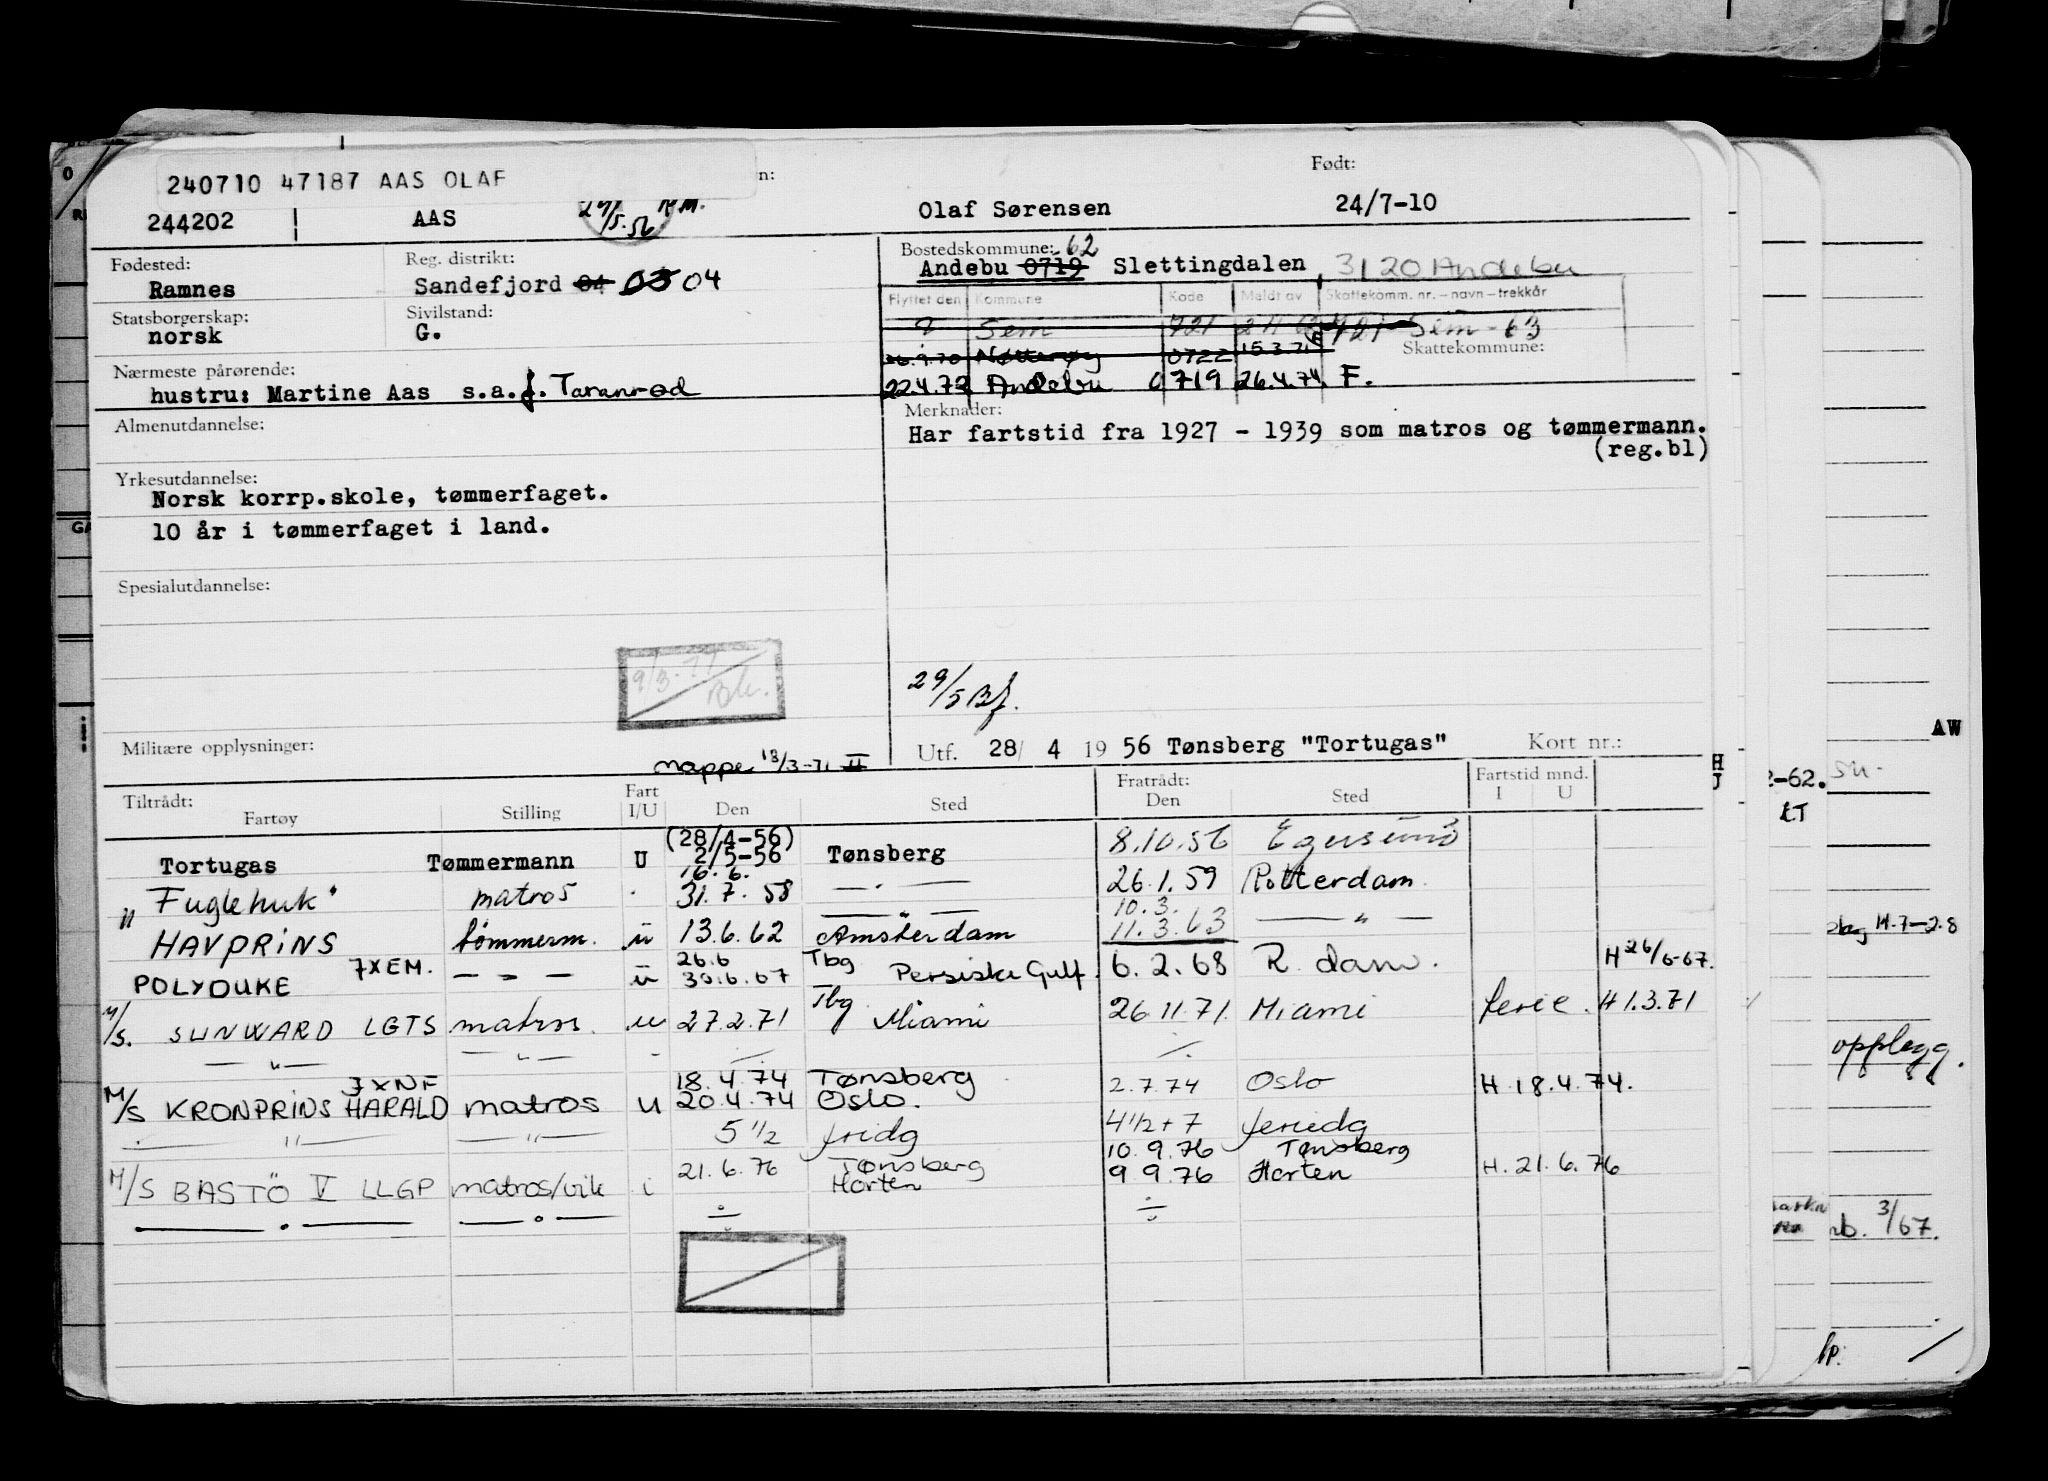 240710 47187 AAS OLAF
Født:
244202 AAS 29/5.56 Olaf Sørensen 24/7-10
Fødested: Reg. distrikt: Bostedskommune: 62
Ramnes Sandefjord 04 03 04 Andebu 0719 Slettingdalen, 3120 Andebu
Statsborgerskap: Sivilstand: Flyttet den Kommune Kode Meldt av Skattekomm. nr. – navn – trekkår
norsk G. ? Sem 721 Sem - 63
26.9.70 Nøtterøy 0722 15.3.71 Skattekommune:
Nærmeste pårørende:
hustru: Martine Aas s.a.f. Taranrød 22.4.72 Andebu 0719 26.4.74 F.
Almenutdannelse: Merknader:
Har fartstid fra 1927 - 1939 som matros og tømmermann.
(reg.bl)
Yrkesutdannelse:
Norsk korrp.skole, tømmerfaget.
10 år i tømmerfaget i land.
Spesialutdannelse:
9/3-77
29/5 Bf.
Militære opplysninger: Utf. 28/ 4 1956 Tønsberg "Tortugas" Kort nr.:
mappe 18/3-71 II
Tiltrådt: Fart Fratrådt: Fartstid mnd.
Fartøy Stilling I/U Den Sted Den Sted I U
(28/4-56)
Tortugas Tømmermann U 2/5-56 Tønsberg 8.10.56 Egersund
16.6.
"Fuglehuk" matros 31.7.58 — " — 26.1.59 Rotterdam
10.3.
HAVPRINS tømmerm. u 13.6.62 Amsterdam 11.3.63 — " —
7XEM. 26.6 Tbg
POLYDUKE — " — u 30.6.67 Persiske Gulf. 6.2.68 R.dam. H 26/6-67.
M/S. SUNWARD LGTS matros. u 27.2.71 Tbg Miami 26.11.71 Miami ferie. H 1.3.71
— " — — " —
JXNF 18.4.74 Tønsberg
M/S KRONPRINS HARALD matros u 20.4.74 Oslo. 2.7.74 Oslo H 18.4.74.
— " — — " — 5 1/2 fridg 4 1/2 + 7 feriedg
10.9.76 Tønsberg
M/S BASTÖ V LLGP matros/vik i 21.6.76 Tønsberg Horten 9.9.76 Horten H. 21.6.76
— " — — " — ÷ ÷
AW
2-62.
LT
H.7-2.8
opplegg.
nb. 3/67.